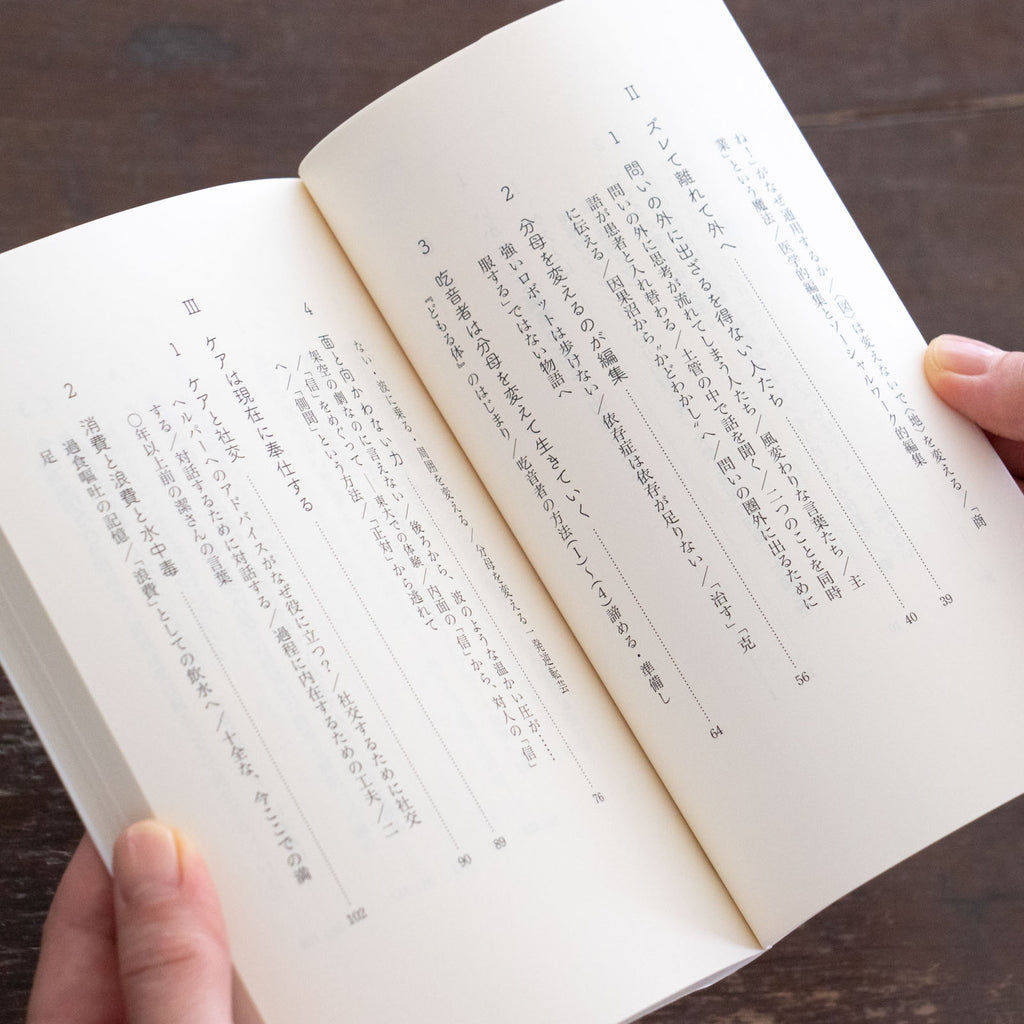 ね！」がなぜ通用するか／〈図〉は変えないで〈地〉を変える／「商
業」という魔法／医学的編集とソーシャルワーク的編集
Ⅱ ズレて離れて外へ 39
1 問いの外に出ざるを得ない人たち 40
問いの外に思考が流れてしまう人たち／風変わりな言葉たち／主
語が患者と入れ替わる／土管の中で話を聞く／二つのことを同時
に伝える／因果沼から“かどわかし”へ／問いの圏外に出るために
2 分母を変えるのが編集 56
強いロボットは歩けない／依存症は依存が足りない／「治す」「克
服する」ではない物語へ
3 吃音者は分母を変えて生きていく 64
『どもる体』のはじまり／吃音者の方法(1)〜(4) 諦める・準備し
ない・波に乗る・周囲を変える／分母を変える一発逆転芸
4 面と向かわない力 76
架空の劇なのに言えない／後ろから、波のような温かい圧が……
／「信」をめぐって 東大での体験／内面の「信」から、対人の「信」
へ／「側聞」という方法／「正対」から逃れて
Ⅲ ケアは現在に奉仕する 89
1 ケアと社交 90
ヘルパーへのアドバイスがなぜ役に立つ？／社交するために社交
する／対話するために対話する／過程に内在するための工夫／二
〇年以上前の潔さんの言葉
2 消費と浪費と水中毒 102
過食嘔吐の記憶／「浪費」としての飲水へ／十全な、今ここでの満
足